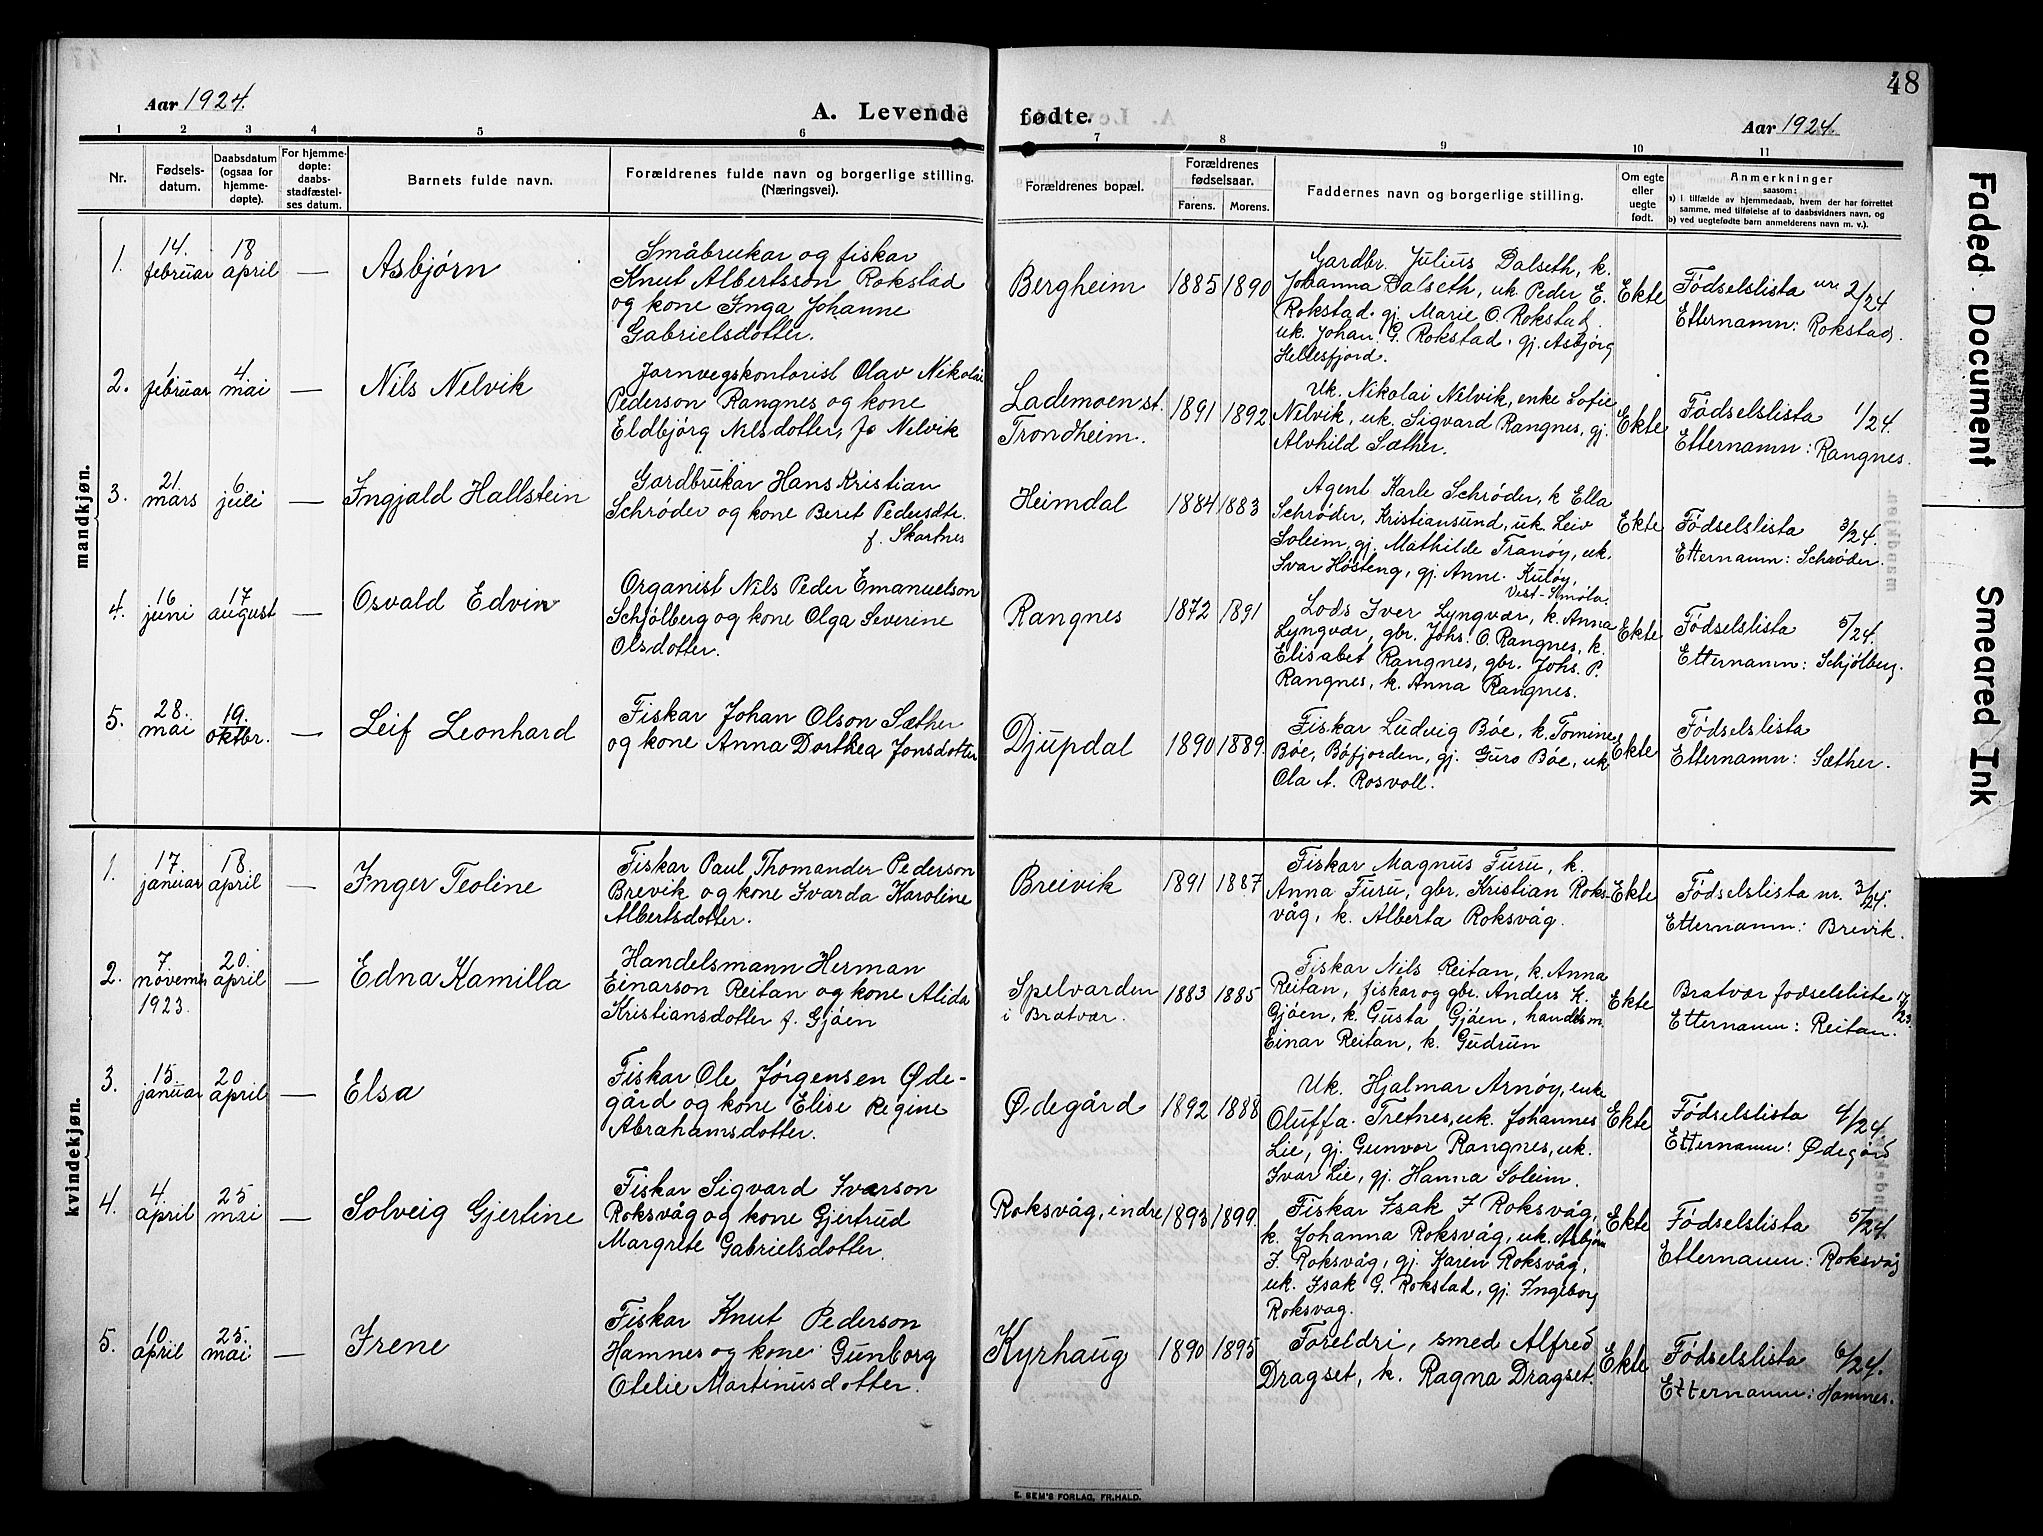 48
Aar 1924.
A. Levende fødte.
Aar 1924.
1 2 3 4 5 6 7 8 9 10 11
Nr.
Fødsels-
datum.
Daabsdatum
(ogsaa for
hjemme-
døpte).
For hjemme-
døpte:
daabs-
stadfæstel-
ses datum.
Barnets fulde navn.
Forældrenes fulde navn og borgerlige stilling.
(Næringsvei).
Forældrenes bopæl.
Forældrenes
fødselsaar.
Farens. Morens.
Faddernes navn og borgerlige stilling.
Om egte
eller
uegte
født.
Anmerkninger
saasom:
a) i tilfælde av hjemmedaab, hvem der har forrettet
samme, med tilføielse af to daabsvidners navn, og
b) ved uegtefødte barn anmelderens navn m. v.).
mandkjøn.
1.
14.
februar
18
april
—
Asbjørn
Småbrukar og fiskar
Knut Albertsson Rokstad
og kone Inga Johanne
Gabrielsdotter.
Bergheim
1885 1890
Gardbr. Julius Dalseth, k.
Johanna Dalseth, uk. Peder E.
Rokstad. gj. Marie O. Rokstad.
uk. Johan. G. Rokstad, gj. Asbjørg
Hellesfjord.
Ekte
Fødselslista nr. 2/24
Etternamn: Rokstad.
2.
1
februar
4
mai
—
Nils Nelvik
Jarnvegskontorist Olav Nikolai
Pederson Rangnes og kone
Eldbjørg Nilsdotter, f. Nelvik
Lademoen st.
Trondheim.
1891 1892
Uk. Nikolai Nelvik, enke Sofie
Nelvik, uk. Sigvard Rangnes, gj.
Alvhild Sæther.
Ekte
Fødselslista 1/24.
Etternamn: Rangnes.
3.
21.
mars
6
juli
—
Ingjald Hallstein
Gardbrukar Hans Kristian
Schrøder og kone Beret Pedersdtr.
f. Skartnes
Heimdal
1884 1883
Agent Karle Schrøder, k Ella
Schrøder, Kristiansund, uk. Leiv
Soleim, gj. Mathilde Tranøy, uk.
Ivar Høsteng, gj. Anne. Kuløy,
Vest-Smøla.
Ekte
Fødselslista 3/24.
Etternamn: Schrøder.
4.
16
juni
17
august
—
Osvald Edvin
Organist Nils Peder Emanuelson
Schjølberg og kone Olga Severine
Olsdotter.
Rangnes
1872 1891
Lods Iver Lyngvær, k. Anna
Lyngvær, gbr. Johs. O. Rangnes, k.
Elisabet Rangnes, gbr. Johs. P.
Rangnes, k. Anna Rangnes.
Ekte
Fødselslista 5/24.
Etternamn: Schjølberg.
5.
28.
mai
19.
oktbr.
—
Leif Leonhard
Fiskar Johan Olson Sæther
og kone Anna Dorthea Jonsdotter
Djupdal
1890 1889.
Fiskar Ludvig Bøe, k. Tomine
Bøe, Bøfjorden, gj. Guro Bøe, uk
Ola A. Rosvoll.
Ekte
Fødselslista
Etternamn: Sæther.
kvindekjøn.
1.
17.
januar
18
april
—
Inger Teoline
Fiskar Paul Thomander Pederson
Brevik og kone Ivarda Karoline
Albertsdotter.
Breivik
1891 1887
Fiskar Magnus Furu, k.
Anna Furu, gbr. Kristian Roks-
våg, k. Alberta Roksvåg.
Ekte
Fødselslista nr. 3/24.
Etternamn: Brevik.
2.
7
novembr
1923.
20.
april
—
Edna Kamilla
Handelsmann Herman
Einarson Reitan og kone Alida
Kristiansdotter f. Gjøen
Spelvarden
i Bratvær.
1883 1885
Fiskar Nils Reitan, k. Anna
Reitan, fiskar og gbr. Anders K.
Gjøen, k. Gusta Gjøen, handelsm.
Einar Reitan, k. Gudrun
Ekte
Bratvær fødselsliste 17/23.
Etternamn: Reitan.
3.
15.
januar
20
april
—
Elsa
Fiskar Ole Jørgensen Øde-
gård og kone Elise Regine
Abrahamsdotter.
Ødegård
1892 1888
Uk. Hjalmar Arnøy, enke
Oluffa. Tretnes, uk. Johannes
Lie, gj. Gunvor Rangnes, uk.
Ivar Lie, gj. Hanna Soleim.
Ekte
Fødselslista 4/24
Etternamn: Ødegård
4.
4.
april
25
mai
—
Solveig Gjertine
Fiskar Sigvard Ivarson
Roksvåg og kone Gjertrud
Margrete Gabrielsdotter.
Roksvåg, indre
1893 1899.
Fiskar Isak I Roksvåg,
k. Johanna Roksvåg, uk. Asbjørn
I. Roksvåg, gj. Karen Roksvåg,
uk. Isak G. Rokstad, gj. Ingeborg
Roksvag.
Ekte
Fødselslista 5/24.
Etternamn: Roksvåg
5.
10
april
25.
mai
—
Irene
Fiskar Knut Pederson
Hamnes og kone Gunborg
Otelie Martinusdotter.
Kyrhaug
1890 1895
Foreldri, smed Alfred
Dragset, k. Ragna Dragset.
Ekte
Fødselslista 6/24.
Etternamn: Hamnes.
E. SEM'S FORLAG, FR.HALD.
Faded Document
Smeared Ink